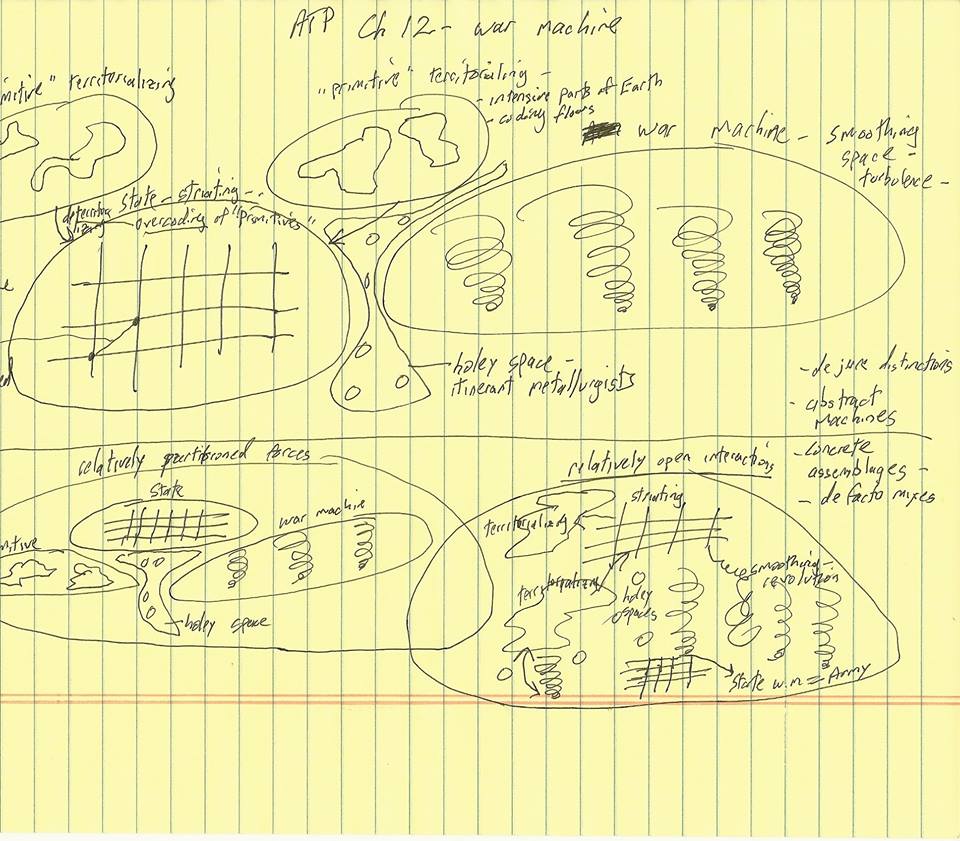 ATP Ch 12 - war machine
"primitive" territorializing
"primitive" territorialing -
- intensive parts of Earth
- coding flows
war machine - smoothing
space -
turbulence -
State - striating - -
overcoding of "primitives"
holey space -
itinerant metallurgists
- de jure distinctions
- abstract
machines
- concrete
assemblages -
- de facto mixes
relatively partitioned forces
State
war machine
holey space
relatively open interactions
territorializing
striating
smoothing -
revolution
holey
spaces
State w.m = Army